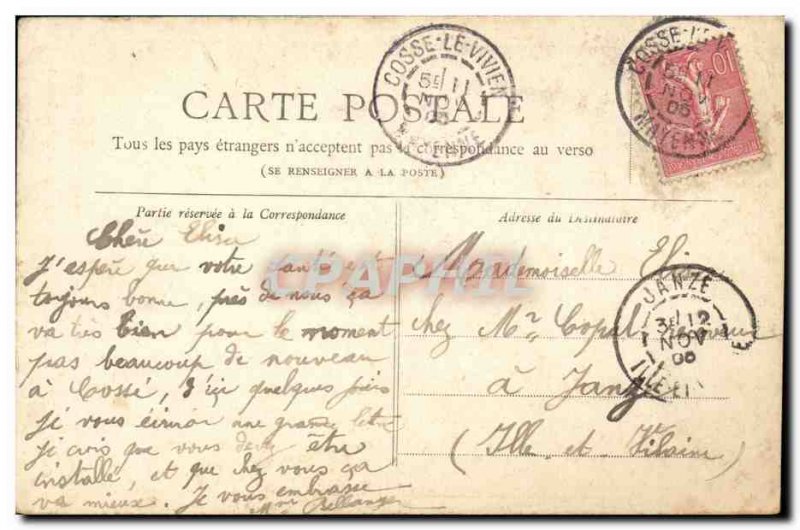 CARTE POSTALE
Tous les pays étrangers n'acceptent pas la correspondance au verso
(SE RENSEIGNER A LA POSTE)
COSSE-LE-VIVIEN
11
NOV
06
COSSE-LE-V
11
NOV
06
MAYENNE
10
Partie réservée à la Correspondance
Adresse du Destinataire
Chère Elisa
J'espère que votre santé est
toujours bonne, près de nous ça
va très bien pour le moment
pas beaucoup de nouveau
à Cossé, d'ici quelques jours
je vous une grande lettre
je crois que vous devez être
installé, et que chez vous ça
va mieux. Je vous embrasse
Mme Bellanger
Mademoiselle Elisa
chez Mr Copal
à Janzé
(Ille et Vilaine)
JANZÉ
12
NOV
06
ILLE-ET
CPAPHIL